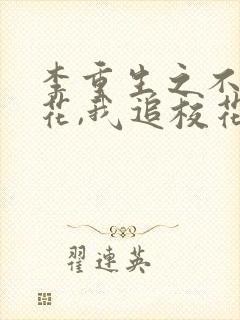 李重生之不
花,我追校花
翟連英